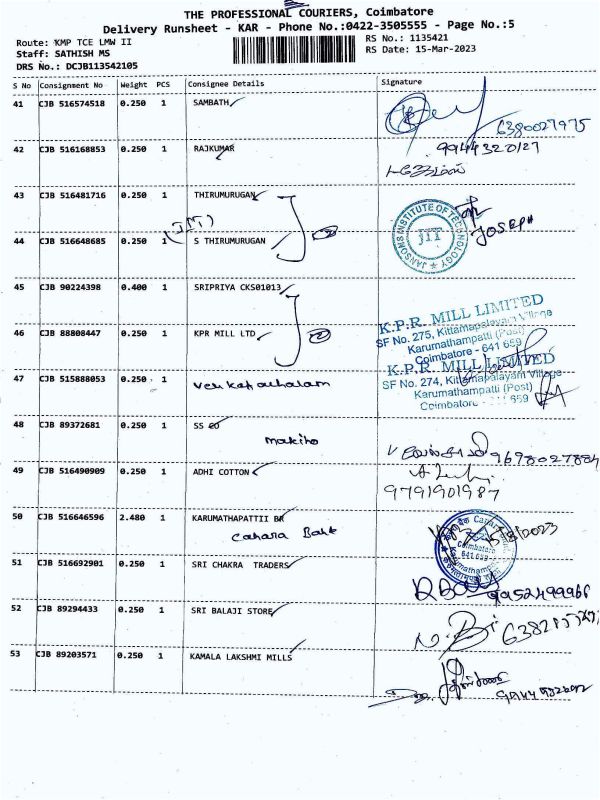 THE PROFESSIONAL COURIERS, Coimbatore
Delivery Runsheet - KAR - Phone No.:0422-3505555 - Page No.:5
Route: KMP TCE LMW II
RS No.: 1135421
Staff: SATHISH MS
RS Date: 15-Mar-2023
DRS No.: DCJB113542105
S No Consignment No Weight PCS Consignee Details Signature
41 CJB 516574518 0.250 1 SAMBATH
6380027975
42 CJB 516168853 0.250 1 RAJKUMAR
9944320127
43 CJB 516481716 0.250 1 THIRUMURUGAN
(JIT)
JANSONS INSTITUTE OF TECHNOLOGY
JIT
JOSEPH
44 CJB 516648685 0.250 1 S THIRUMURUGAN
45 CJB 90224398 0.400 1 SRIPRIYA CKS01013
K.P.R. MILL LIMITED
SF No. 275, Kittampalayam Village
Karumathampatti (Post)
Coimbatore - 641 659
46 CJB 88808447 0.250 1 KPR MILL LTD
K.P.R. MILL LIMITED
SF No. 274, Kittampalayam Village
Karumathampatti (Post)
Coimbatore - 641 659
47 CJB 515888053 0.250 1
Venkatachalam
48 CJB 89372681 0.250 1 SS CO
makiho
9698027884
49 CJB 516490909 0.250 1 ADHI COTTON
9791901987
50 CJB 516646596 2.480 1 KARUMATHAPATTII BR
Canara Bank
Coimbatore
641 659
51 CJB 516692901 0.250 1 SRI CHAKRA TRADERS
9952499966
52 CJB 89294433 0.250 1 SRI BALAJI STORE
53 CJB 89203571 0.250 1 KAMALA LAKSHMI MILLS